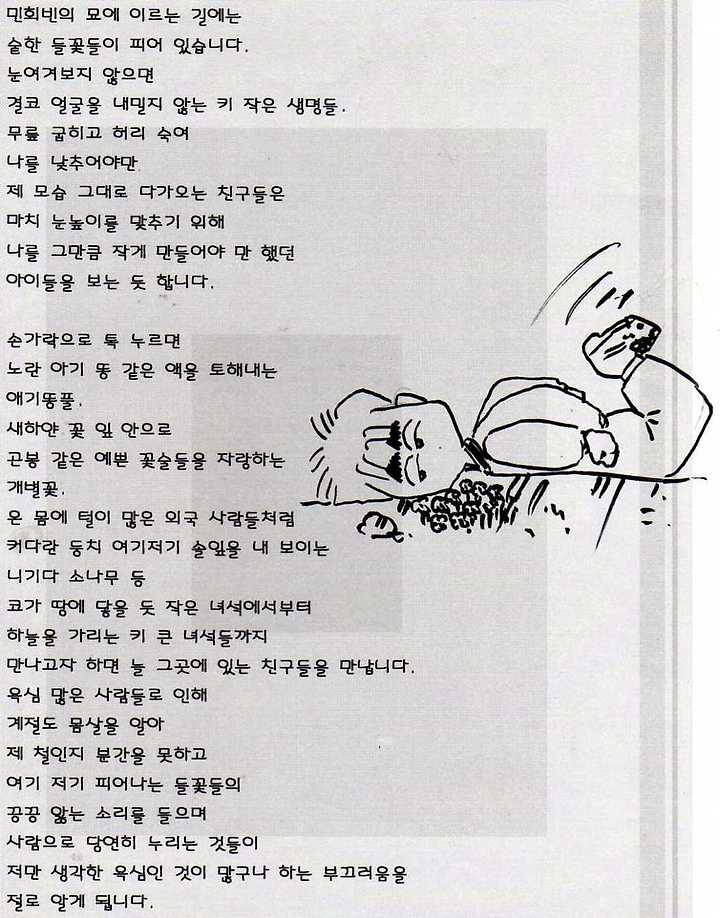 민회빈의 묘에 이르는 길에는
숱한 들꽃들이 피어 있습니다.
눈여겨보지 않으면
결코 얼굴을 내밀지 않는 키 작은 생명들.
무릎 굽히고 허리 숙여
나를 낮추어야만
제 모습 그대로 다가오는 친구들은
마치 눈높이를 맞추기 위해
나를 그만큼 작게 만들어야 만 했던
아이들을 보는 듯 합니다.
손가락으로 톡 누르면
노란 아기 똥 같은 액을 토해내는
애기똥풀.
새하얀 꽃 잎 안으로
곤봉 같은 예쁜 꽃술들을 자랑하는
개별꽃.
온 몸에 털이 많은 외국 사람들처럼
커다란 둥치 여기저기 솔잎을 내 보이는
니기다 소나무 등
코가 땅에 닿을 듯 작은 녀석에서부터
하늘을 가리는 키 큰 녀석들까지
만나고자 하면 늘 그곳에 있는 친구들을 만납니다.
욕심 많은 사람들로 인해
계절도 몸살을 앓아
제 철인지 분간을 못하고
여기 저기 피어나는 들꽃들의
끙끙 앓는 소리를 들으며
사람으로 당연히 누리는 것들이
저만 생각한 욕심인 것이 많구나 하는 부끄러움을
절로 알게 됩니다.